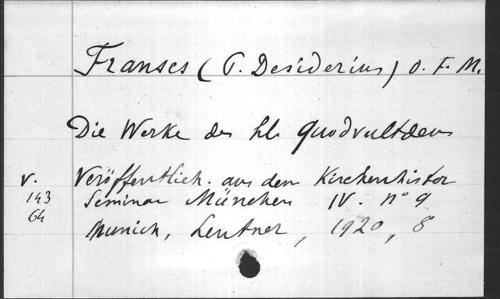 Franses (P. Desiderius) O. F. M.
Die Werke des hl. Quodvultdeus
V. Veröffentlich. aus dem Kirchenhistor
143 Seminar München IV. n° 9
64 Munich, Lentner, 1920, 8